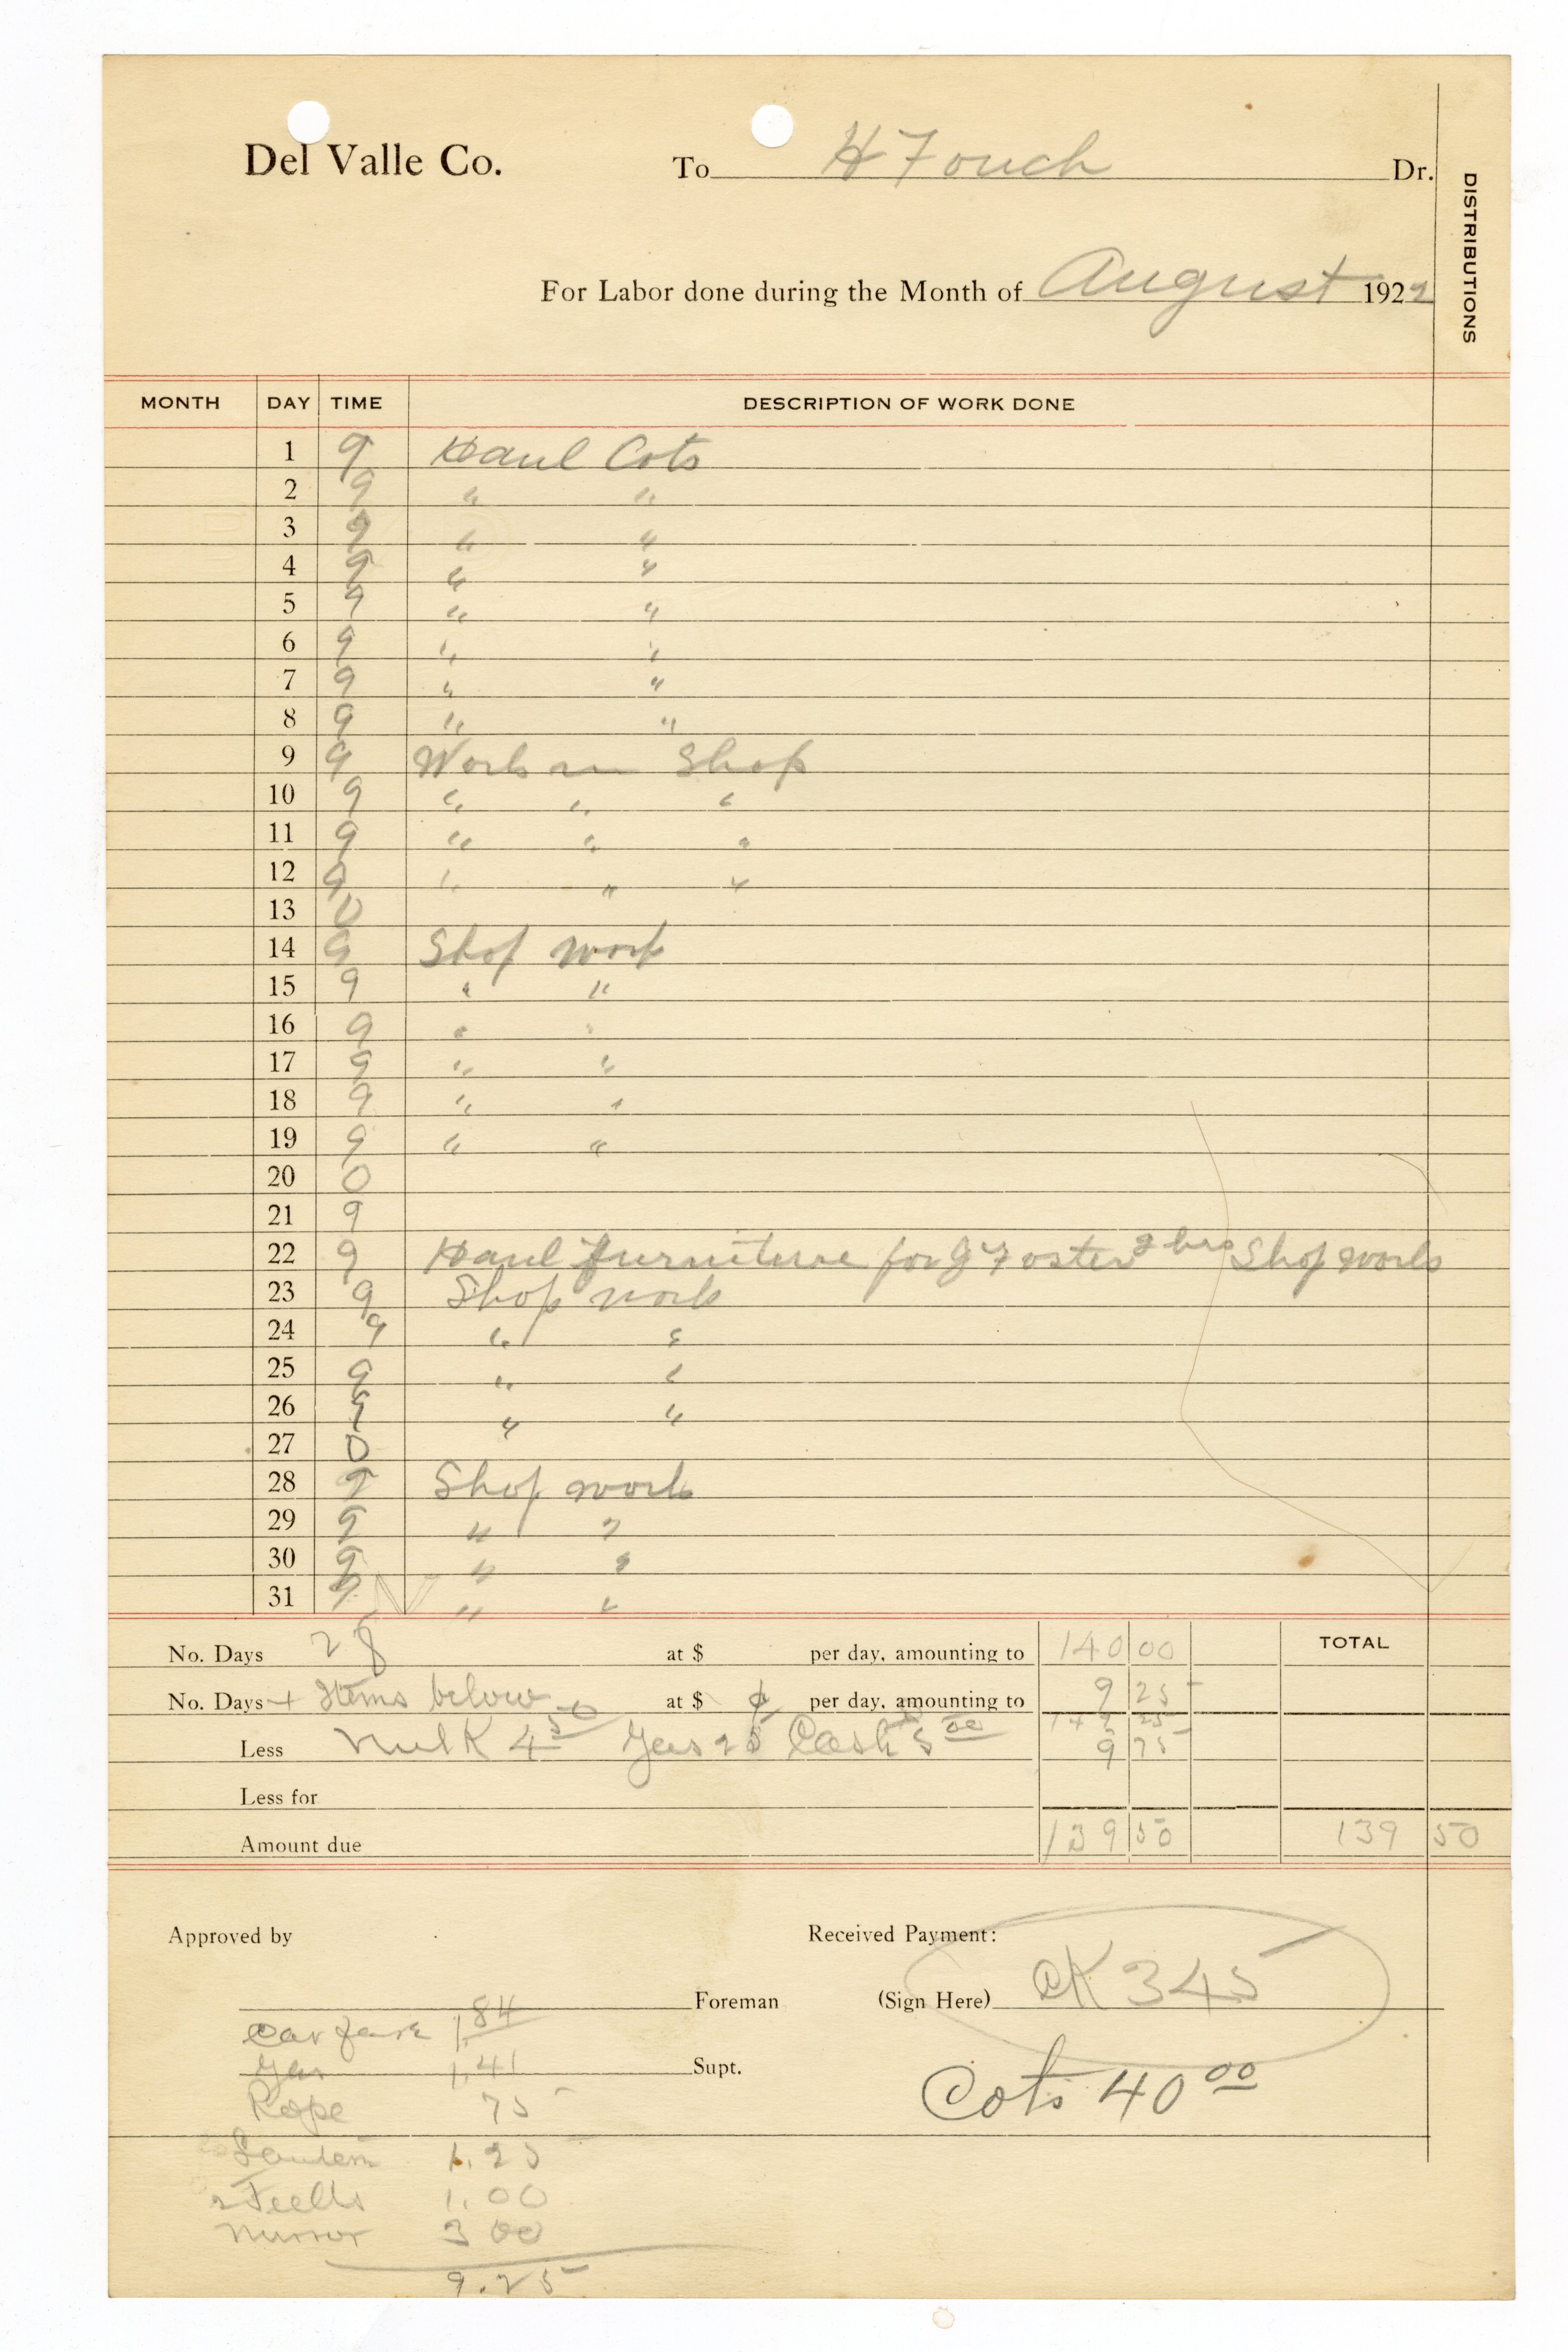 Del Valle Co. To H Fouch Dr.
DISTRIBUTIONS
For Labor done during the Month of August 1922
MONTH DAY TIME DESCRIPTION OF WORK DONE
1 9 Haul Cots
2 9 " "
3 9 " "
4 9 " "
5 9 " "
6 9 " "
7 9 " "
8 9 " "
9 9 Work in Shop
10 9 " " "
11 9 " " "
12 9 " " "
13 0
14 9 Shop work
15 9 " "
16 9 " "
17 9 " "
18 9 " "
19 9 " "
20 0
21 9
22 9 Haul furniture for J Foster 2 hrs Shop work
23 9 Shop work
24 9 " "
25 9 " "
26 9 " "
27 0
28 9 Shop work
29 9 " "
30 9 " "
31 9 " "
No. Days 28 at $ per day, amounting to 140 00 TOTAL
No. Days + Items below at $ per day, amounting to 9 25
149 25
Less Milk 4 50 Gas 25 Cash 5 00 9 75
Less for
Amount due 139 50 139 50
Approved by Received Payment:
Foreman (Sign Here) CK 345
Car fare 1.84
Gas 1.41 Supt.
Cots 40 00
Rope 75
1.25
2 1.00
Mirror 3 00
9.25